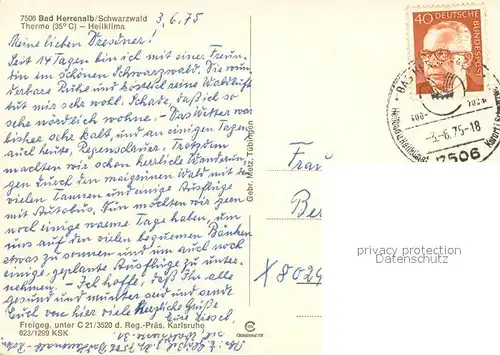 7506 Bad Herrenalb/Schwarzwald
Therme (35°C) – Heilklima
3.6.75
Meine lieben Dresdner!
Seit 14 Tagen bin ich mit einer Freun-
din im schönen Schwarzwald. Die wun-
derbare Ruhe und köstlich reine Waldluft
tut mir sehr wohl. Schade, daß ich so
sehr nördlich wohne. – Das Wetter war
bisher sehr kalt, und an einigen Tagen
auch heute, Regenschauer. Trotzdem
machten wir schon herrliche Wanderun-
gen durch den maigrünen Wald mit
vielen Tannen und einige Ausflüge
mit Autobus. Nun möchten wir gern
noch einige warme Tage haben, um
uns auf den vielen bequemen Bänken
etwas zu sonnen und um auch noch
einige geplante Ausflüge zu unter-
nehmen. – Ich hoffe, daß Ihr alle
gesund und munter seid und sende
Euch von hier viele herzliche Grüße
Eure
Freigeg. unter C 21/3520 d. Reg.-Präs. Karlsruhe
623/1299 KSK
Gebr. Metz, Tübingen
40 DEUTSCHE BUNDESPOST
BAD HERRENALB
-3.-6.75-18
7506
Frau
X 8029
privacy protection
Datenschutz